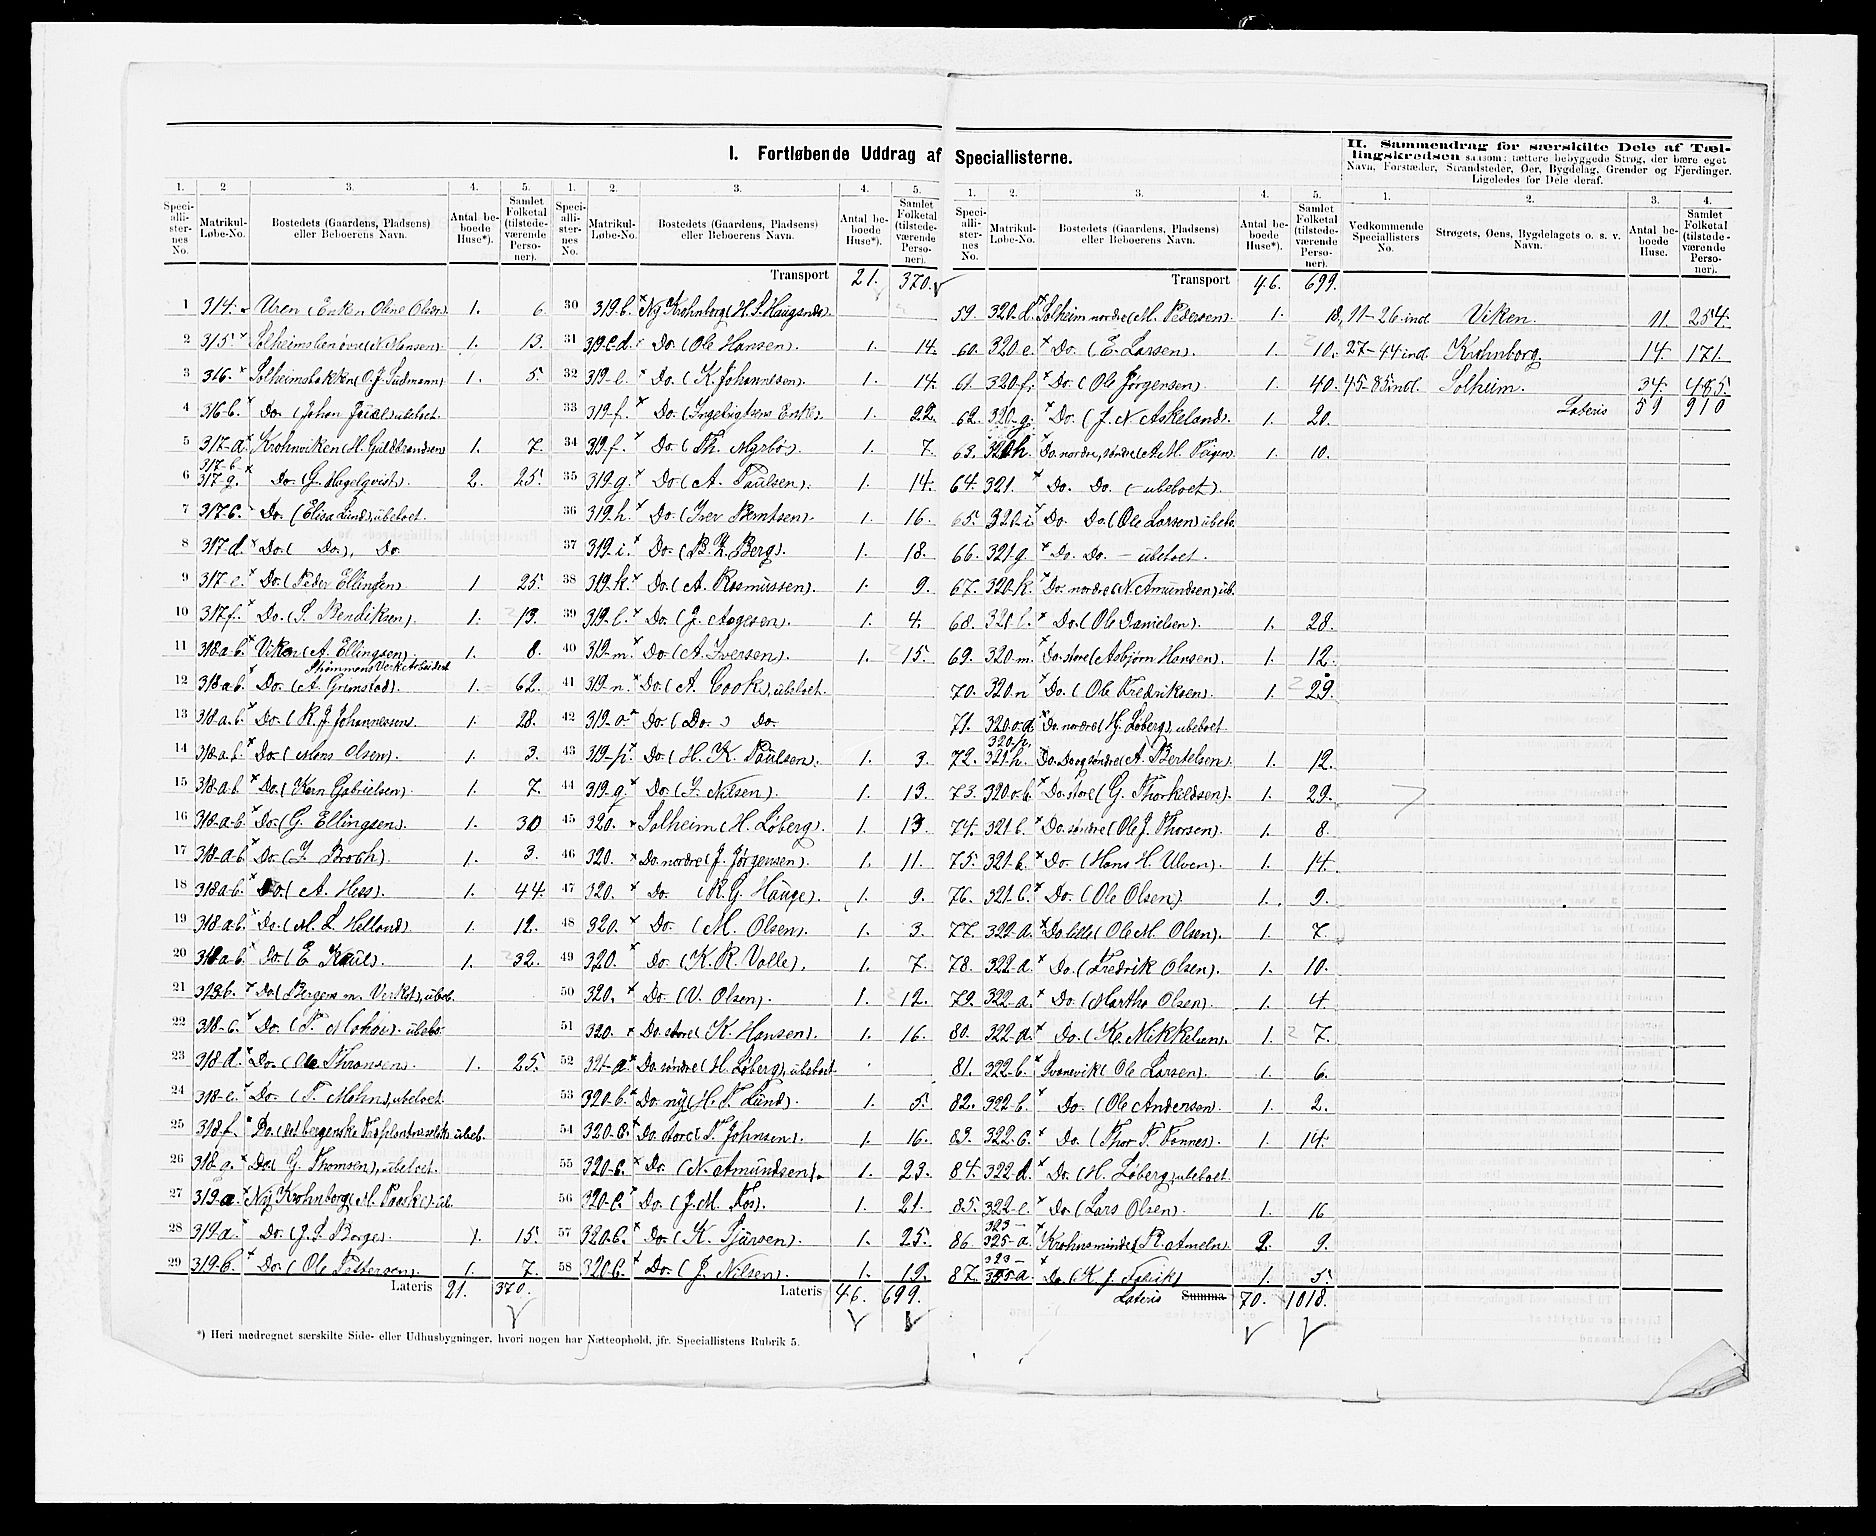 I. Fortløbende Uddrag af Speciallisterne.
II. Sammendrag for særskilte Dele af Tæl-
lingskredsen saasom: tættere bebyggede Strøg, der bære eget
Navn, Forstæder, Strandsteder, Øer, Bygdelag, Grender og Fjerdinger.
Ligeledes for Dele deraf.
1. 2 3. 4. 5.
Speciallisternes No. Matrikul-Løbe-No. Bostedets (Gaardens, Pladsens) eller Beboerens Navn. Antal beboede Huse*). Samlet Folketal (tilstedeværende Personer).
1 314. Uren (Enken Oline Olsdr) 1. 6.
2 315 × Solheimslien øvre (N. Hansen). 1. 13.
3 316. × Solheimsbakken (O. J. Sudmann) 1. 5.
4 316 b. × Do. (Johan Juul) ubeboet.
5 317-a × Krohnviken (H. Guldbrandsen) 1. 7.
317-b ×
6 317 g. Do. (G. Hagelqvist). 2. 25.
7 317 c. Do. (Elisa Lund), ubeboet.
8 317 d. × Do. ( Do. ), Do.
9 317-e. × Do. (Peder Ellingsen) 1 25.
10 317 f. × Do. (S. Bendiksen). 1. 13.
11 318 a-b. × Viken (A. Ellingsen). 1. 8.
Strømmens Værks Arbeidsst
12 318 a b. × Do. (A. Grimstad). 1. 62.
13 318 a. b. × Do. (R. J. Johannesen). 1. 28.
14 318-a-b. × Do. (Mons Olsen). 1. 3.
15 318-a-b × Do. (Karn Gabrielsen). 1. 7.
16 318-a-b. × Do. (G. Ellingsen). 1. 30
17 318-a-b × Do. (J. Broch). 1. 3.
18 318 a-b. × Do. (A. Hess). 1. 44.
19 318 a-b. × Do. (M. L. Helland) 1. 12.
20 318 a-b. × Do. (E. Kaul). 1. 32.
21 318 b. × Do. (Bergens m. Verksted), ubeb.
22 318-c. × Do. (T. Mohn). ubebo.
23 318 d. × Do. (Ole Thronsen). 1. 25.
24 318-e. × Do. (T. Mohn), ubeboet.
25 318 f. × Do. (det bergenske Træplantnselsk. ubeb.
26 318 a. × Do. (G. Thomsen), ubeboet.
27 319 a. × Ny Krohnborg (M. Paaske) ub.
28 319 a. × Do. (J. S. Borge). 1. 15.
29 319 b. × Do. (Ole Pettersen). 1. 7.
Lateris 21. 370.
1. 2. 3. 4. 5.
Speciallisternes No. Matrikul-Løbe-No. Bostedets (Gaardens, Pladsens) eller Beboerens Navn. Antal beboede Huse*). Samlet Folketal (tilstedeværende Personer).
Transport 21. 370.
30 319 b. × Ny Krohnborg (H. S. Haugsnds).
31 319 c d. × Do. (Ole Hansen). 1. 14.
32 319-e. × Do. (K. Johannesen). 1. 14.
33 319-f. × Do. (Ingebrigtsens Enke). 1. 22.
34 319-f. × Do. (Th. Myrbø). 1. 7.
35 319-g. × Do. (A. Paulsen). 1. 14.
36 319. h. × Do. (Iver Berntsen). 1. 16.
37 319. i. × Do. (B. Z. Berg). 1. 18.
38 319. k. × Do. (A. Rasmussen). 1. 9.
39 319. l. × Do. (J. Aagesen). 1. 4.
40 319. m. × Do. (A. Iversen). 1. 15.
41 319. n. × Do. (A. Cook), ubeboet.
42 319-o. × Do. ( Do. ) Do.
43 319-p. × Do. (H. K. Paulsen). 1. 3.
44 319. q. × Do. (I. Nilsen). 1. 13.
45 320. × Solheim (H. Løberg). 1. 13.
46 320. × Do. nordre (J. Jørgensen). 1. 11.
47 320. × Do. (R. G. Hauge). 1. 9.
48 320. × Do. (M. Olsen). 1. 3.
49 320. × Do. (K. R. Valle). 1. 7.
50 320. × Do. (V. Olsen). 1. 12.
51 320. × Do. store (K. Hansen). 1. 16.
52 321-a × Do. søndre (H. Løberg), ubeboet.
53 320-b. × Do. ny (H. T. Lund). 1. 5.
54 320-b. × Do. store (T. Johnsen). 1. 16.
55 320-b. × Do. (N. Amundsen). 1. 23.
56 320-c. × Do. (J. M. Fos). 1. 21.
57 320-b. × Do. (K. Sjursen). 1. 25.
58 320 b. × Do. (J. Nilsen). 1. 19.
Lateris 46. 699.
1. 2. 3. 4. 5.
Speciallisternes No. Matrikul-Løbe-No. Bostedets (Gaardens, Pladsens) eller Beboerens Navn. Antal beboede Huse*). Samlet Folketal (tilstedeværende Personer).
Transport 46. 699.
59 320. d. × Solheim nordre (M. Pedersen). 1. 18.
60. 320. e. × Do. (E. Larsen). 1. 10.
61. 320-f. × Do. (Ole Jørgensen). 1. 40.
62. 320-g. × Do. (J. N. Askeland). 1. 20.
63. 320 h. × Do. nordre, søndre (A. M. Teigen). 1. 10.
64. 321. × Do. Do. (- ubeboet).
65. 320. i. × Do. Do. (Ole Larsen) ubebo.
66. 321 g. × Do. Do. - ubeboet.
67. 320. k. × Do. nordre (N. Amundsen) ub.
68. 321. l. × Do. (Ole Danielsen). 1. 28.
69. 320. m. × Do. store (Asbjørn Hansen). 1. 12.
70. 320. n × Do. (Ole Fredriksen). 1. 29.
71. 320. o. d × Do. nordre (H. Løberg), ubeboet.
320. p,
72. 321. h. Do. Do. og søndre (A. Bertelsen). 1. 12.
73. 320 o. b. × Do. store (G. Thorkildsen). 1. 29.
74. 321 b. × Do. søndre (Ole J. Thorsen). 1. 8.
75. 321. b. × Do. (Hans H. Ulven). 1. 14.
76. 321. b. × Do. (Ole Olsen). 1. 9.
77. 322. a. × Do. lille (Ole M. Olsen). 1. 7.
78. 322-a. × Do. (Fredrik Olsen). 1. 10.
79. 322-a. × Do. (Martha Olsen). 1. 4.
80. 322-a. × Do. (K. Mikkelsen). 1. 7.
81. 322-b. × Svanevik (Ole Larsen). 1. 6.
82. 322. b. × Do. (Ole Andersen). 1. 2.
83. 322. c. × Do. (Thor T. Tonnes). 1. 14.
84. 322. d. × Do. (H. Løberg) ubeboet.
85. 322-e. × Do. (Lars Olsen). 1. 16
323 -
86. 325-a. × Krohnsminde (R. Ameln). 2. 9.
323 -
87. 325 a. × Do. (K. J. Fabrik) 1. 5.
Lateris Summa 70. 1018.
1. 2. 3. 4.
Vedkommende Speciallisters No. Strøgets, Øens, Bygdelagets o. s. v. Navn. Antal beboede Huse. Samlet Folketal (tilstedeværende Personer).
11-26 incl. Viken. 11. 254.
27-44 incl. Krohnborg. 14. 171.
45-85 incl. Solheim. 34. 485.
Lateris 59 910
*) Heri medregnet særskilte Side- eller Udhusbygninger, hvori nogen har Natteophold, jfr. Speciallistens Rubrik 5.